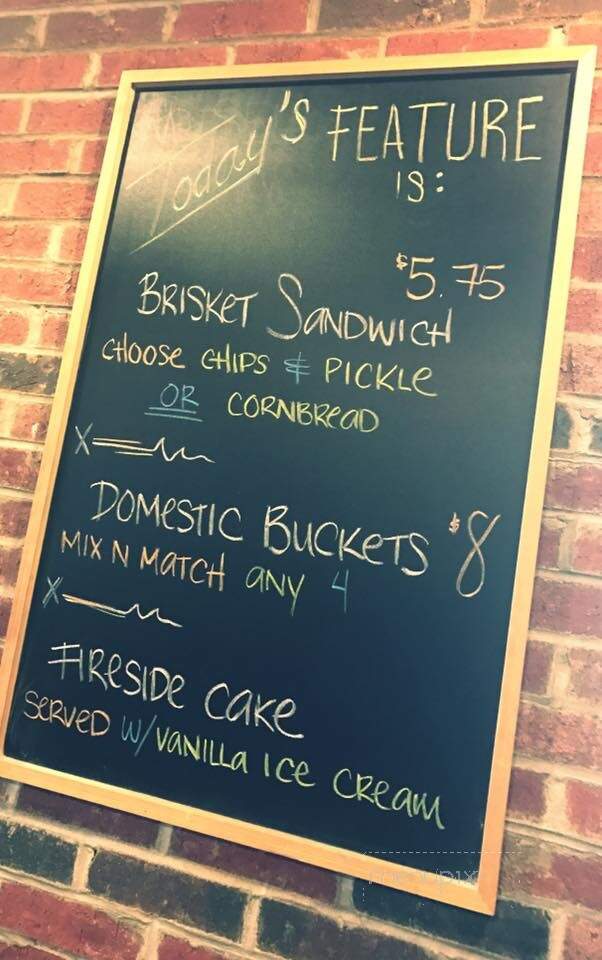 Today's FEATURE
IS:
$5.75
BRISKET SANDWICH
CHOOSE CHIPS & PICKLE
OR CORNBREAD
DOMESTIC BUCKETS $8
MIX N MATCH ANY 4
FIRESIDE CAKE
SERVED W/VANILLA ICE CREAM